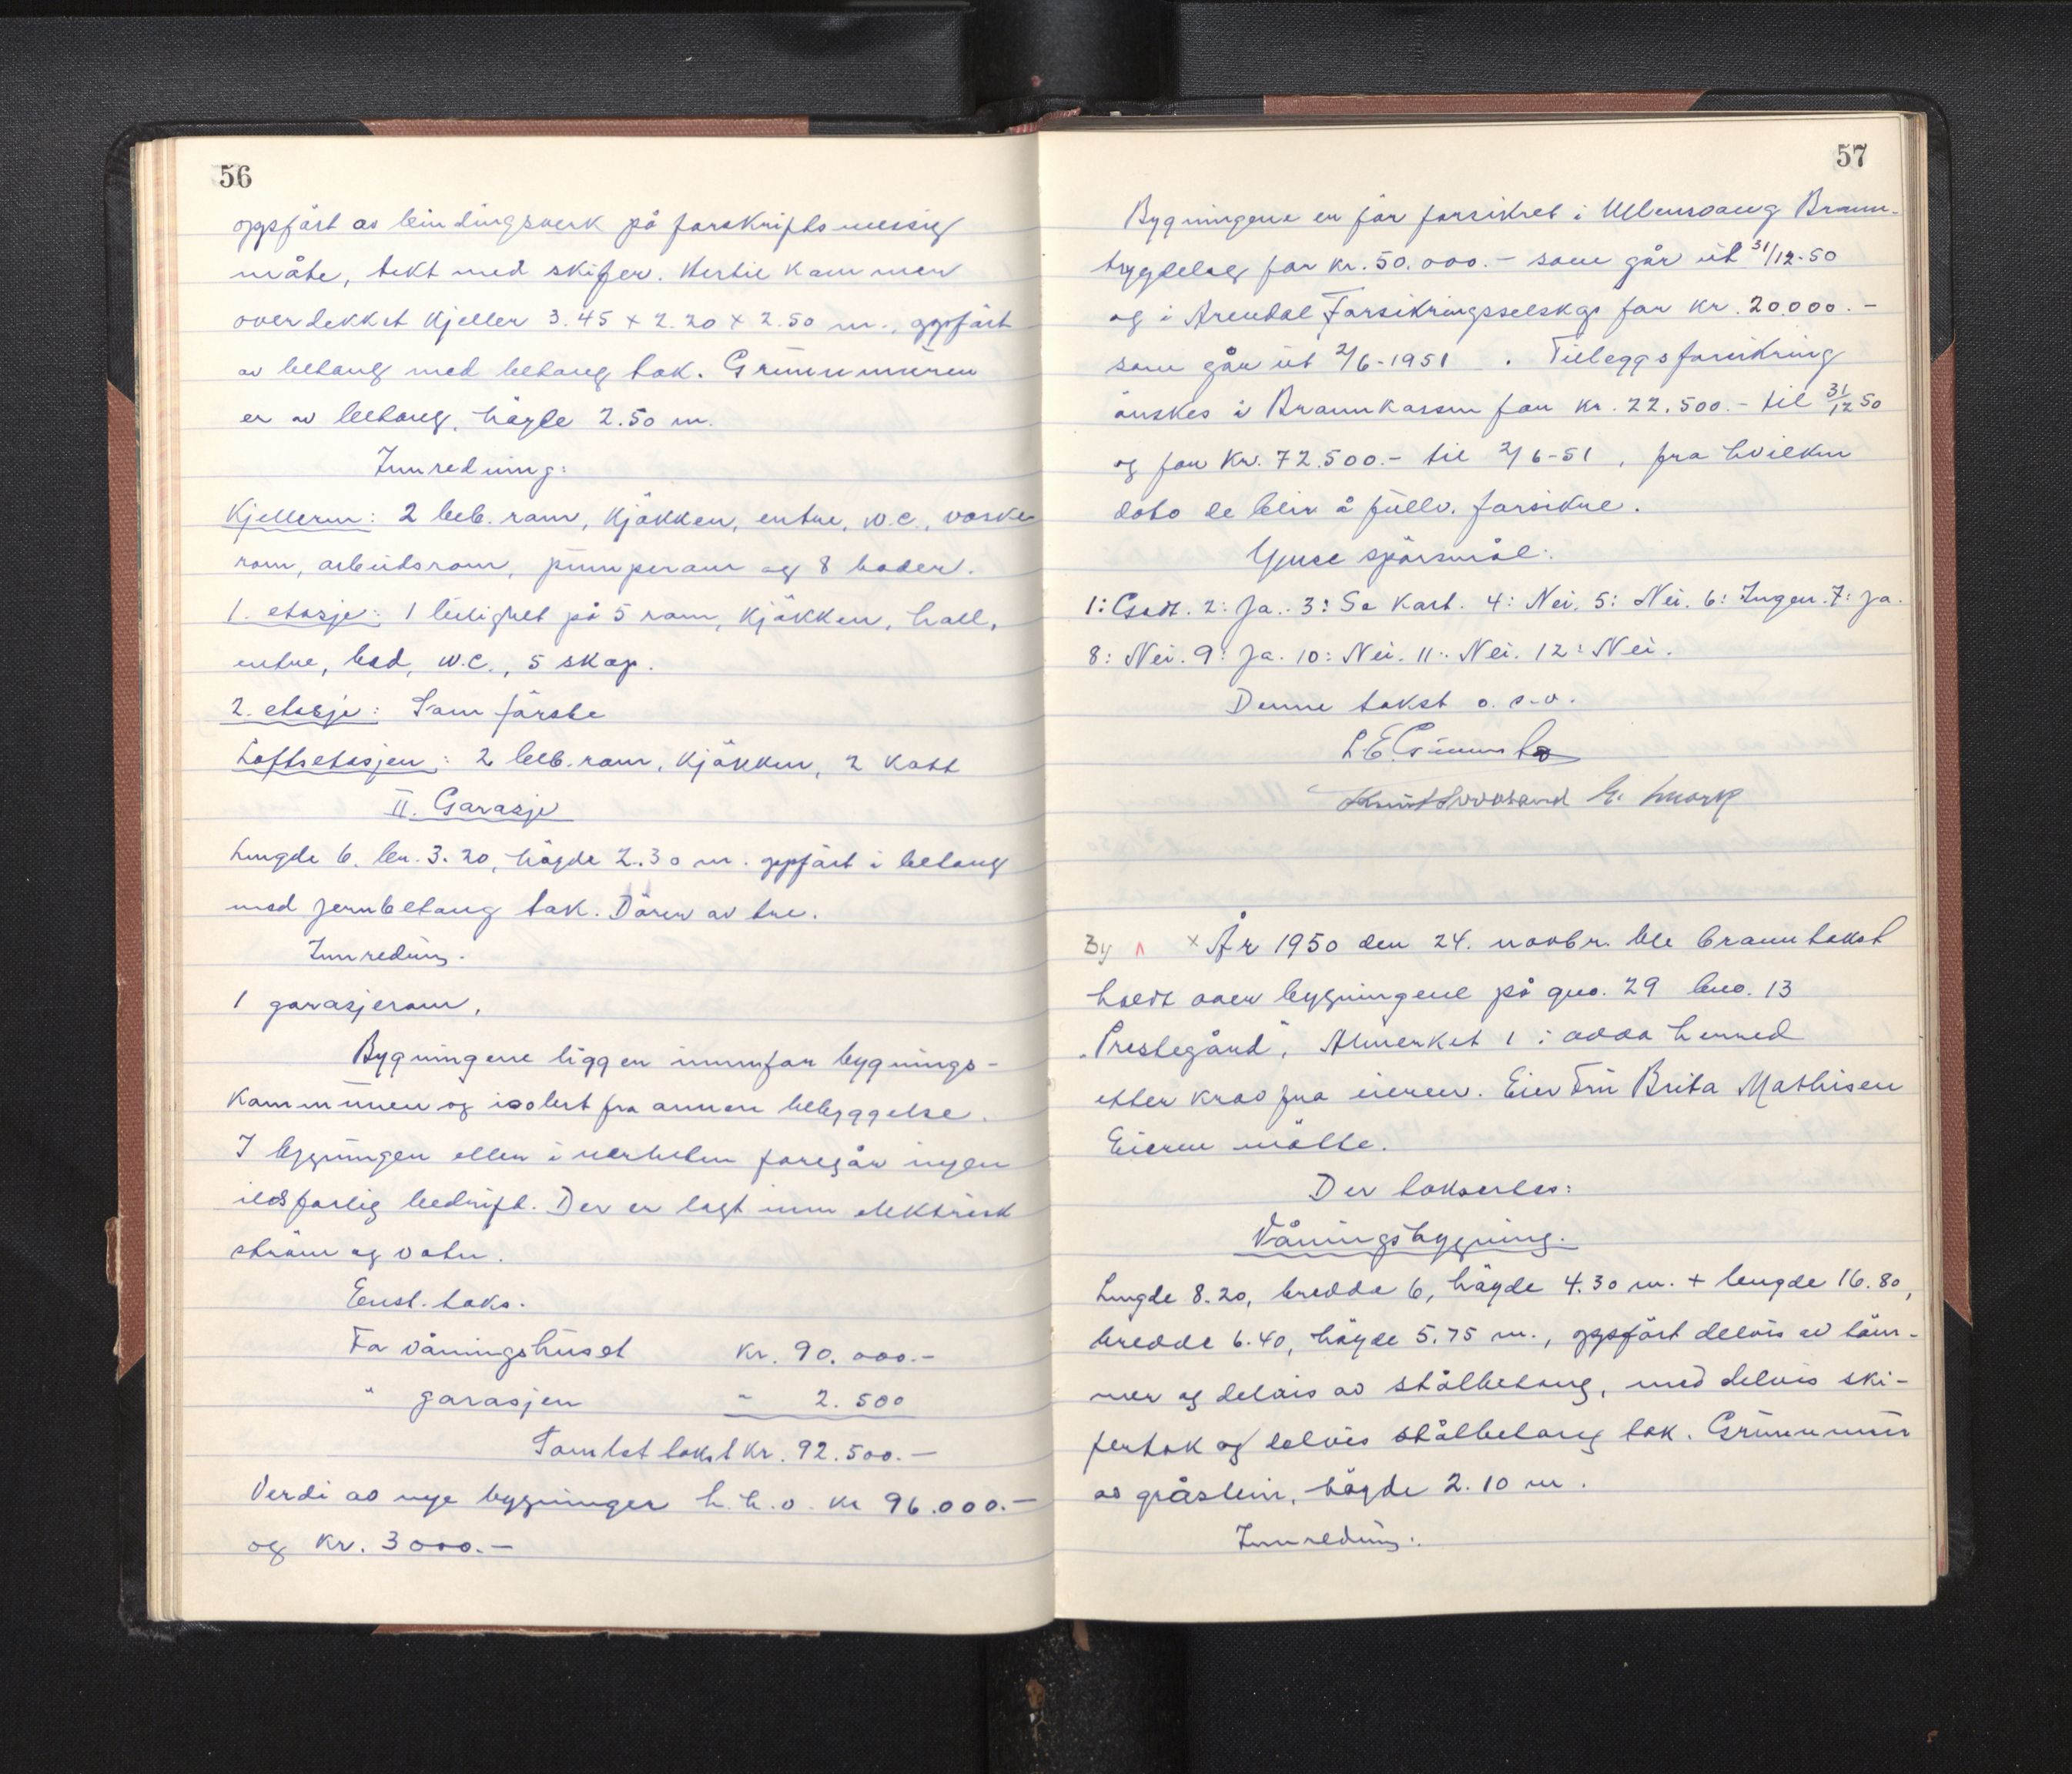 56
oppført av bindingsverk på forskriftsmessig
måte, tekt med skifer. Hertil kommer
overdekket kjeller 3.45 x 2.20 x 2.50 m., oppført
av betong med betong tak. Grunnmuren
er av betong, høgde 2.50 m.
Innredning:
Kjelleren: 2 beb. rom, kjøkken, entre, w.c., vaske
rom, arbeidsrom, pumperom og 8 boder.
1. etasje: 1 leilighet på 5 rom, kjøkken, hall,
entre, bad, w.c., 5 skap.
2. etasje: Som første
Loftsetasjen: 2 beb. rom, kjøkken, 2 kott
II. Garasje
Lengde 6. br. 3.20, høgde 2.30 m. oppført i betong
med jernbetong tak. Dører av tre.
Innredning.
1 garasjerom.
Bygningene ligger innenfor bygnings-
kommunen og isolert fra annen bebyggelse.
I bygningen eller i nærheten foregår ingen
ildsfarlig bedrift. Der er lagt inn elektrisk
strøm og vatn.
Enst. taks.
For våningshuset kr. 90.000.-
" garasjen " 2.500
Samlet takst kr. 92.500.-
Verdi av nye bygninger h.h.v. kr 96.000.-
og kr. 3000.-
57
Bygningene er før forsikret i Ullensvang Brann-
trygdelag for kr. 50.000.- som går ut 31/12-50
og i Arendal Forsikringsselskap for kr. 20.000.-
som går ut 2/6-1951. Tilleggsforsikring
ønskes i Brannkassen for kr. 22.500.- til 31/12 50
og for kr. 72.500.- til 2/6-51, fra hvilken
dato de blir å fullv. forsikre.
Ymse spørsmål:
1: Godt. 2: Ja. 3: Se kart. 4: Nei. 5: Nei. 6: Ingen. 7: Ja.
8: Nei. 9: Ja. 10: Nei. 11: Nei. 12: Nei.
Denne takst o.s.v.
By x År 1950 den 24. novbr. ble branntakst
holdt over bygningene på gno. 29 bno. 13
"Prestegård", Almerket 1 i Odda herred
etter krav fra eieren. Eier Fru Brita Mathisen
Eieren møtte.
Der taksertes:
Våningsbygning.
Lengde 8.20, bredde 6, høgde 4.30 m. + lengde 16.80,
bredde 6.40, høgde 5.75 m., oppført delvis av tøm-
mer og delvis av stålbetong, med delvis ski-
fertak og delvis stålbetong tak. Grunnmur
av gråstein, høgde 2.10 m.
Innredning: